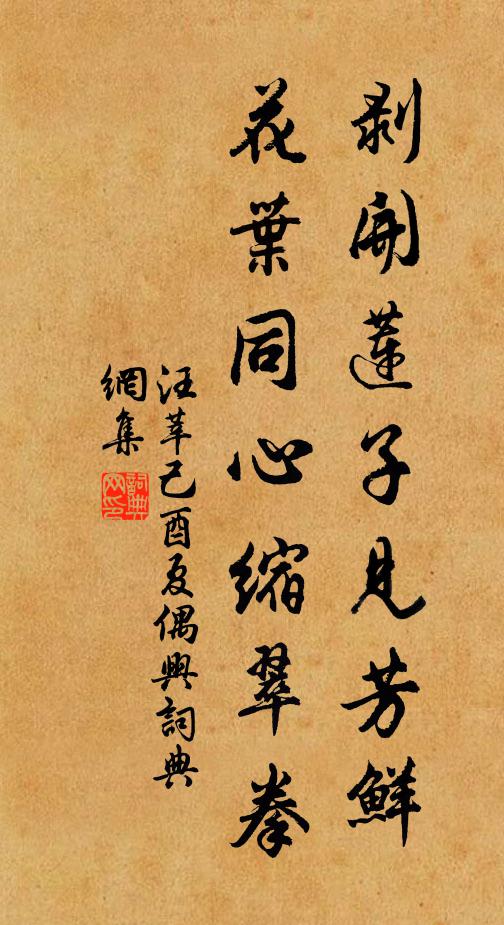 剥開蓮子見芳鮮
花葉同心縮翠拳
汪莘己酉夏偶興詞典
網集
詞典
网印